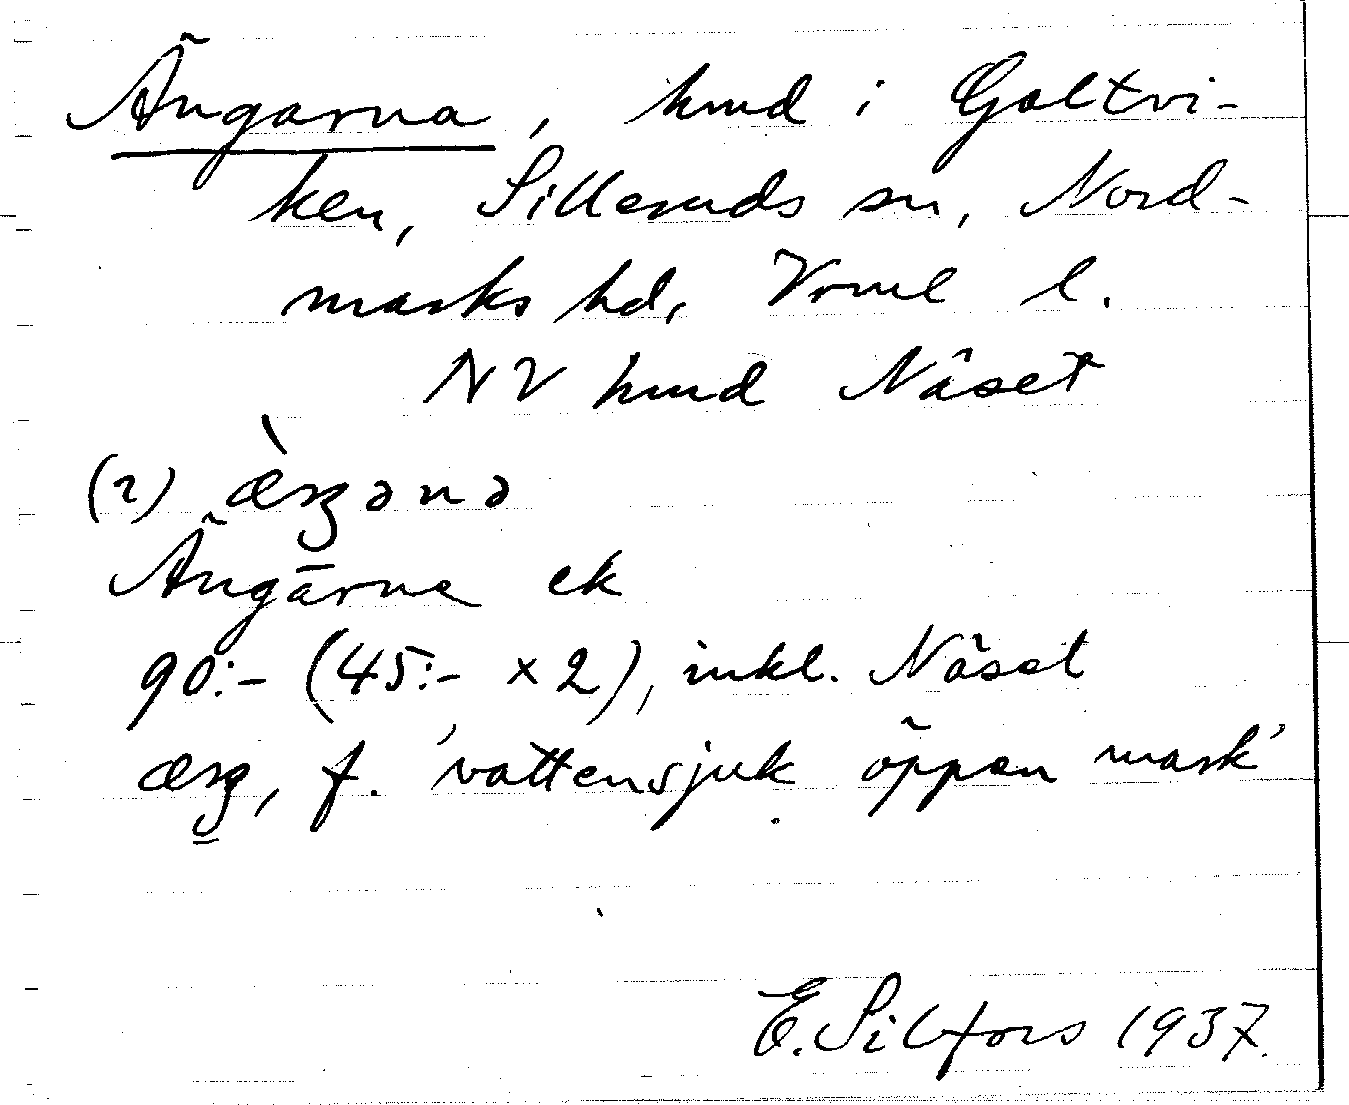 Ängarna, hmd i Galtvi-
ken, Silleruds sn, Nord-
marks hd, Vrml l.
NV hmd Näset
(2) æ̀ŋana
Ängärne ek
90:- (45:- × 2), inkl. Näset
æŋ, f. 'vattensjuk öppen mark'
E. Silfors 1937.